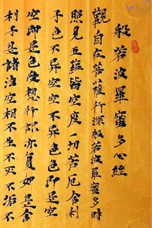 般若波羅蜜多心經
觀自在菩薩行深般若波羅蜜多時
照見五蘊皆空度一切苦厄舍利
子色不異空空不異色色即是空
空即是色受想行識亦復如是舍
利子是諸法空相不生不滅不垢不